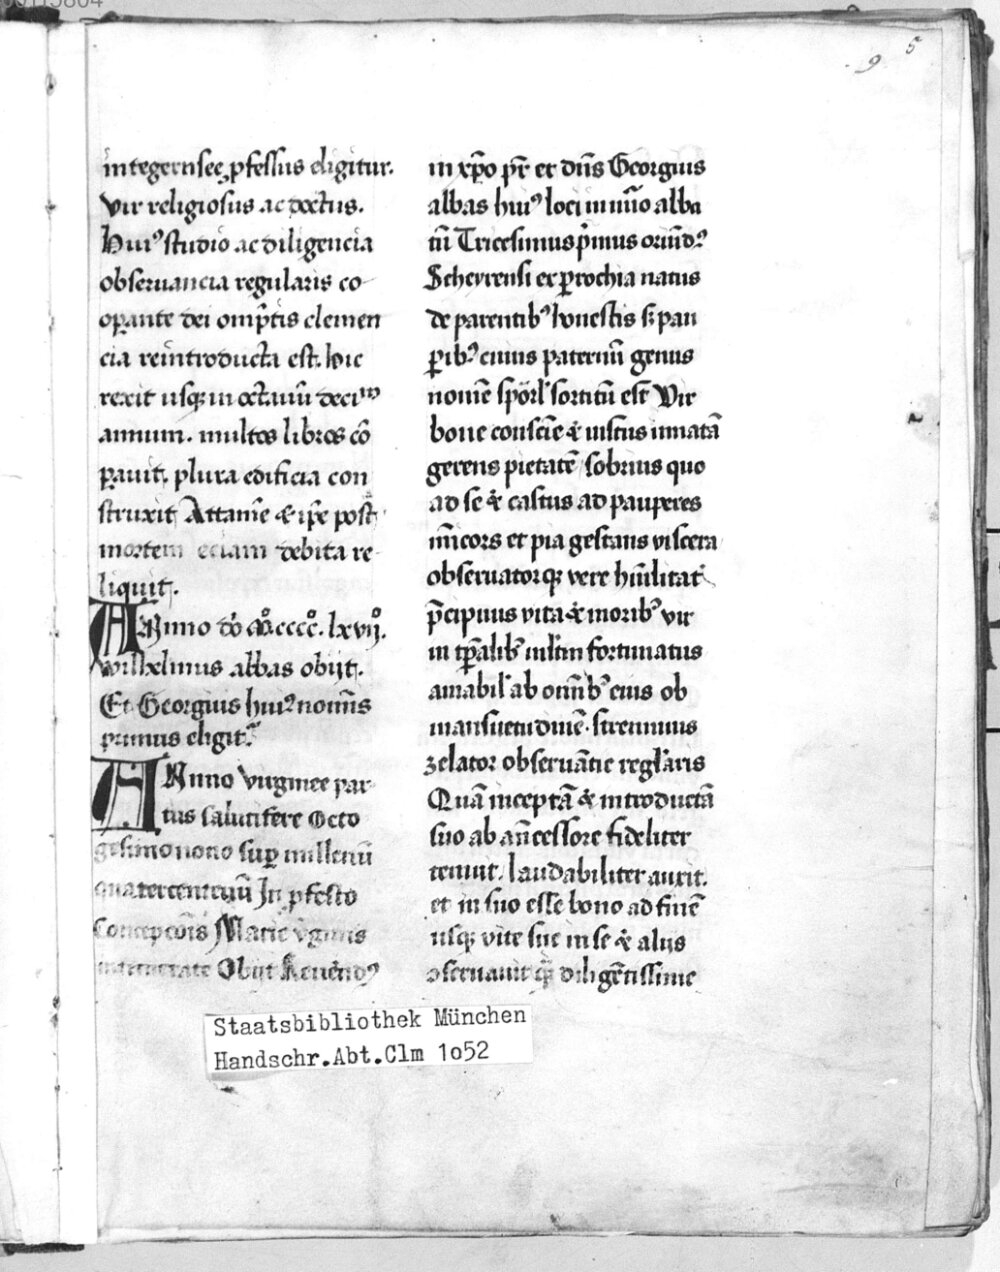 9 5
integernsee ꝓfessus eligitur.
Vir religiosus ac doctus.
Huiꝰ studio ac diligencia
obseruancia regularis co
oꝑante dei omp̄tis clemen
cia reintroducta est. hic
rexit usqꝫ in octauū deciᵐ
annum. multos libros cō
ꝑauit. plura edificia con
struxit Attamē & ip̄e post
mortem eciam debita re
liquit.
Anno dō Mͦccccͦ. lxvijͦ.
wilhelmus abbas obijt.
Et Georgius huiꝰ nominis
primus eligitᷣ
Anno virginee par
tus salutifere Octo
gesimonono suꝑ millenū
quatercentenū In ꝓfesto
Concepcōis Marie v̓ginis
intemerate Obijt Reuēndꝰ
in xp̄o pr̄ et dn̄s Georgius
abbas huiꝰ loci in nūo abba
tū Tricesimus p̓mus oriūdꝰ
Scheyrensi ex ꝑrochia natus
de parentibꝰ honestis sꝫ pau
ꝑibꝰ cuius paternū genus
nomē spörl sortitū est Vir
bone consciē & uiscus innatā
gerens pietatē sobrius quo
ad se & castus ad pauperes
mīcors et pia gestans viscera
obseruatorqꝫ vere hūilitatꝭ
p̄cipuus vita & moribꝰ vir
in tꝑalibꝰ mltm̄ fortunatus
amabil' ab omībꝰ eius ob
mansuetudinē. strennuus
zelator obseruātie regl'aris
Quā inceptā & introductā
suo ab an̄cessore fideliter
tenuit. laudabiliter auxit.
et in suo esse bono ad finē
usqꝫ vite sue in se & alijs
oseruauit qꝫ diligētissime
Staatsbibliothek München
Handschr.Abt.Clm 1o52